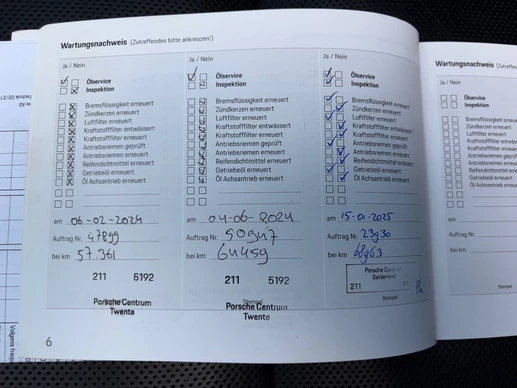 Wartungsnachweis (Zutreffendes bitte ankreuzen!)
Ja / Nein
Ölservice
Inspektion
Bremsflüssigkeit erneuert
Zündkerzen erneuert
Luftfilter erneuert
Kraftstofffilter entwässert
Kraftstofffilter erneuert
Antriebsriemen geprüft
Antriebsriemen erneuert
Reifendichtmittel erneuert
Getriebeöl erneuert
Öl Achsantrieb erneuert
am 06-02-2024
Auftrag Nr. 47899
bei km 57.361
211 5192
Porsche Centrum
Twente
Ja / Nein
Ölservice
Inspektion
Bremsflüssigkeit erneuert
Zündkerzen erneuert
Luftfilter erneuert
Kraftstofffilter entwässert
Kraftstofffilter erneuert
Antriebsriemen geprüft
Antriebsriemen erneuert
Reifendichtmittel erneuert
Getriebeöl erneuert
Öl Achsantrieb erneuert
am 04-06-2024
Auftrag Nr.
bei km
211 5192
Stempel
Porsche Centrum
Twente
Ja / Nein
Ölservice
Inspektion
Bremsflüssigkeit erneuert
Zündkerzen erneuert
Luftfilter erneuert
Kraftstofffilter entwässert
Kraftstofffilter erneuert
Antriebsriemen geprüft
Antriebsriemen erneuert
Reifendichtmittel erneuert
Getriebeöl erneuert
Öl Achsantrieb erneuert
am 15-01-2025
Auftrag Nr. 23930
bei km 68963
Porsche Centrum
Gelderland
211
Stempel
6
Wartungsnachweis
Ja / Nein
Ölservice
Inspektion
am
Auftrag Nr.
bei km